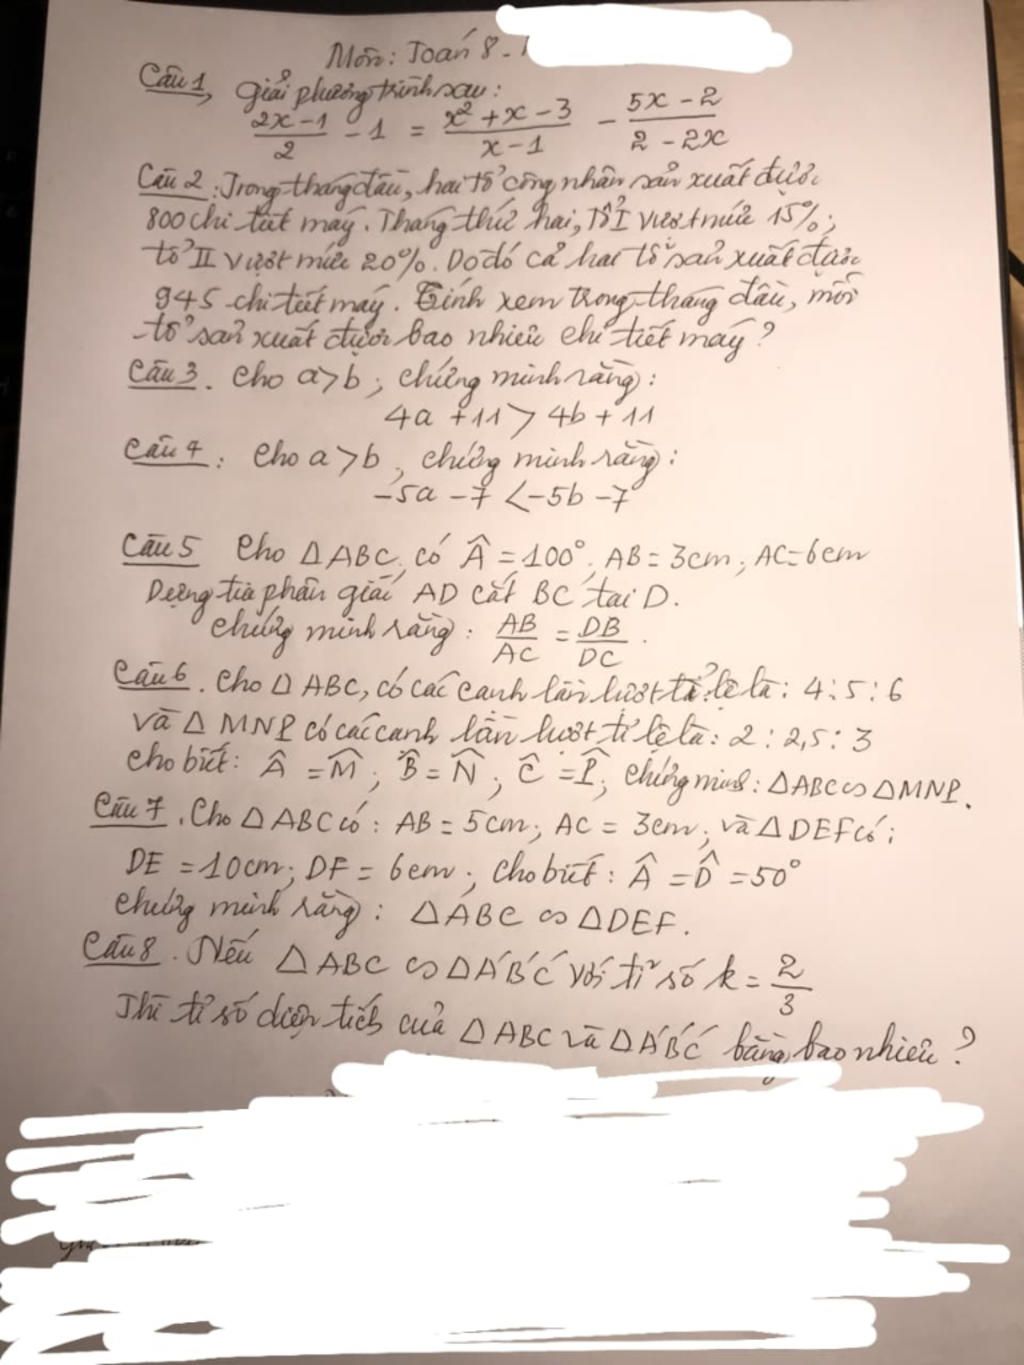 Môn: Toán 8 -
Câu 1, giải phương trình sau:
(2x - 1)/2 - 1 = (x² + x - 3)/(x - 1) - (5x - 2)/(2 - 2x)
Câu 2: Trong tháng đầu, hai tổ công nhân sản xuất được
800 chi tiết máy. Tháng thứ hai, Tổ I vượt mức 15%;
tổ II vượt mức 20%. Do đó cả hai tổ sản xuất được
945 chi tiết máy. Tính xem trong tháng đầu, mỗi
tổ sản xuất được bao nhiêu chi tiết máy?
Câu 3. Cho a > b; chứng minh rằng:
4a + 11 > 4b + 11
Câu 4: Cho a > b, chứng minh rằng:
-5a - 7 < -5b - 7
Câu 5 Cho Δ ABC, có Â = 100°, AB = 3cm; AC = 6cm
Dựng tia phân giác AD cắt BC tại D.
Chứng minh rằng: AB/AC = DB/DC.
Câu 6. Cho Δ ABC, có các cạnh lần lượt tỉ lệ là: 4 : 5 : 6
và Δ MNP có các cạnh lần lượt tỉ lệ là: 2 : 2,5 : 3
Cho biết: Â = M̂; B̂ = N̂; Ĉ = P̂; Chứng minh: ΔABC ∽ ΔMNP.
Câu 7. Cho Δ ABC có: AB = 5cm; AC = 3cm; và Δ DEF có;
DE = 10cm; DF = 6cm; Cho biết: Â = D̂ = 50°
Chứng minh rằng: ΔABC ∽ ΔDEF.
Câu 8. Nếu Δ ABC ∽ ΔA'B'C' với tỉ số k = 2/3
Thì tỉ số diện tích của Δ ABC và Δ A'B'C' bằng bao nhiêu?